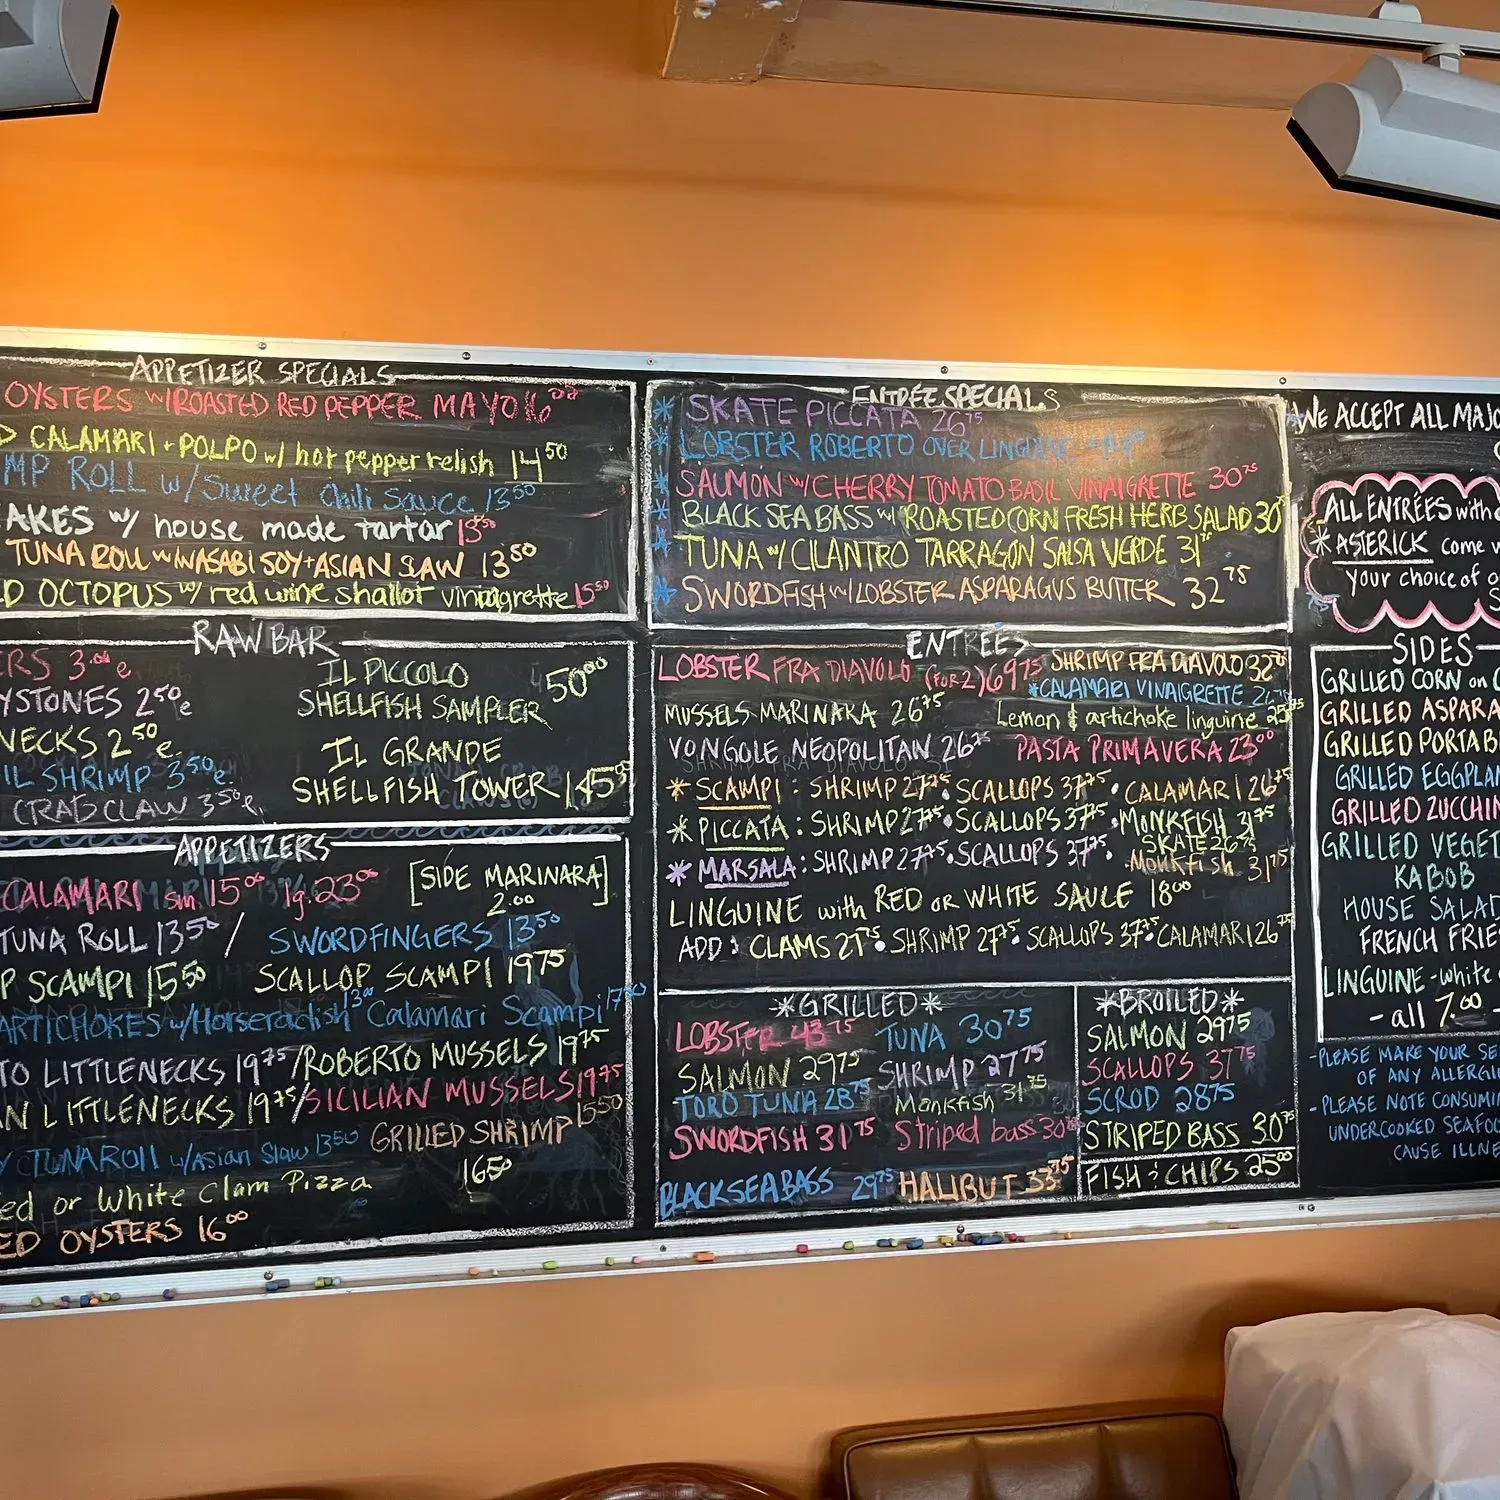 APPETIZER SPECIALS
OYSTERS W/ROASTED RED PEPPER MAYO 16
CALAMARI + POLPO w/ hot pepper relish 14 50
MP ROLL w/ Sweet Chili Sauce 13 50
AKES w/ house made tartar
TUNA ROLL W/WASABI SOY + ASIAN SLAW 13 50
D OCTOPUS w/ red wine shallot vinaigrette 15 50
RAW BAR
ERS 3.00 e
YSTONES 2 50 e
NECKS 2 50 e
IL SHRIMP 3 50 e
CRAB CLAW 3 50 e
IL PICCOLO
SHELLFISH SAMPLER 50 00
IL GRANDE
SHELLFISH TOWER 145
APPETIZERS
CALAMARI sm 15 00 lg. 23 00
[SIDE MARINARA]
2.00
TUNA ROLL 13 50 / SWORDFINGERS 13 50
P SCAMPI 15 50 SCALLOP SCAMPI 19 75
ARTICHOKES w/Horseradish 13 00 Calamari Scampi
TO LITTLENECKS 19 75 / ROBERTO MUSSELS 19 75
AN LITTLENECKS 19 75 / SICILIAN MUSSELS 19 75
Y TUNA ROLL w/Asian Slaw 13 50 GRILLED SHRIMP 15 50
ed or White Clam Pizza 16 50
ED OYSTERS 16 00
ENTRÉE SPECIALS
* SKATE PICCATA 26 75
* LOBSTER ROBERTO OVER LINGUINE
* SALMON W/CHERRY TOMATO BASIL VINAIGRETTE 30 75
* BLACK SEA BASS W/ ROASTED CORN FRESH HERB SALAD 30
* TUNA w/ CILANTRO TARRAGON SALSA VERDE 31
* SWORDFISH w/ LOBSTER ASPARAGUS BUTTER 32 75
ENTREES
LOBSTER FRA DIAVOLO (FOR 2) 69 75 SHRIMP FRA DIAVOLO 32 00
*CALAMARI VINAIGRETTE
MUSSELS MARINARA 26 75 Lemon & artichoke linguine
VONGOLE NEOPOLITAN 26 75 PASTA PRIMAVERA 23 00
* SCAMPI : SHRIMP 27 75 • SCALLOPS 37 75 • CALAMARI 26 75
* PICCATA : SHRIMP 27 75 • SCALLOPS 37 75 • MONKFISH 31 75
SKATE 26 75
* MARSALA : SHRIMP 27 75 • SCALLOPS 37 75 • Monkfish 31 75
LINGUINE with RED OR WHITE SAUCE 18 00
ADD : CLAMS 27 75 • SHRIMP 27 75 • SCALLOPS 37 75 • CALAMARI 26 75
*GRILLED*
LOBSTER 43 75 TUNA 30 75
SALMON 29 75 SHRIMP 27 75
TORO TUNA 28 75 Monkfish 31 75
SWORDFISH 31 75 Striped bass 30
BLACK SEA BASS 29 75 HALIBUT 35 75
*BROILED*
SALMON 29 75
SCALLOPS 37 75
SCROD 28 75
STRIPED BASS 30 75
FISH & CHIPS 25 00
WE ACCEPT ALL MAJO
ALL ENTRÉES with a
* ASTERICK come w
your choice of
SIDES
GRILLED CORN on C
GRILLED ASPARA
GRILLED PORTAB
GRILLED EGGPLAN
GRILLED ZUCCHIN
GRILLED VEGET
KABOB
HOUSE SALAD
FRENCH FRIES
LINGUINE - white
- all 7.00 -
-PLEASE MAKE YOUR SE
OF ANY ALLERGI
-PLEASE NOTE CONSUMI
UNDERCOOKED SEAFOO
CAUSE ILLNE